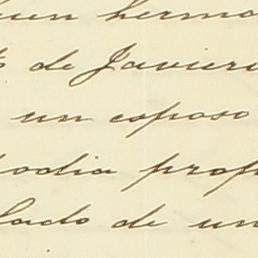 un hermo
de Javieri
un esposo
odia prop
lado de un